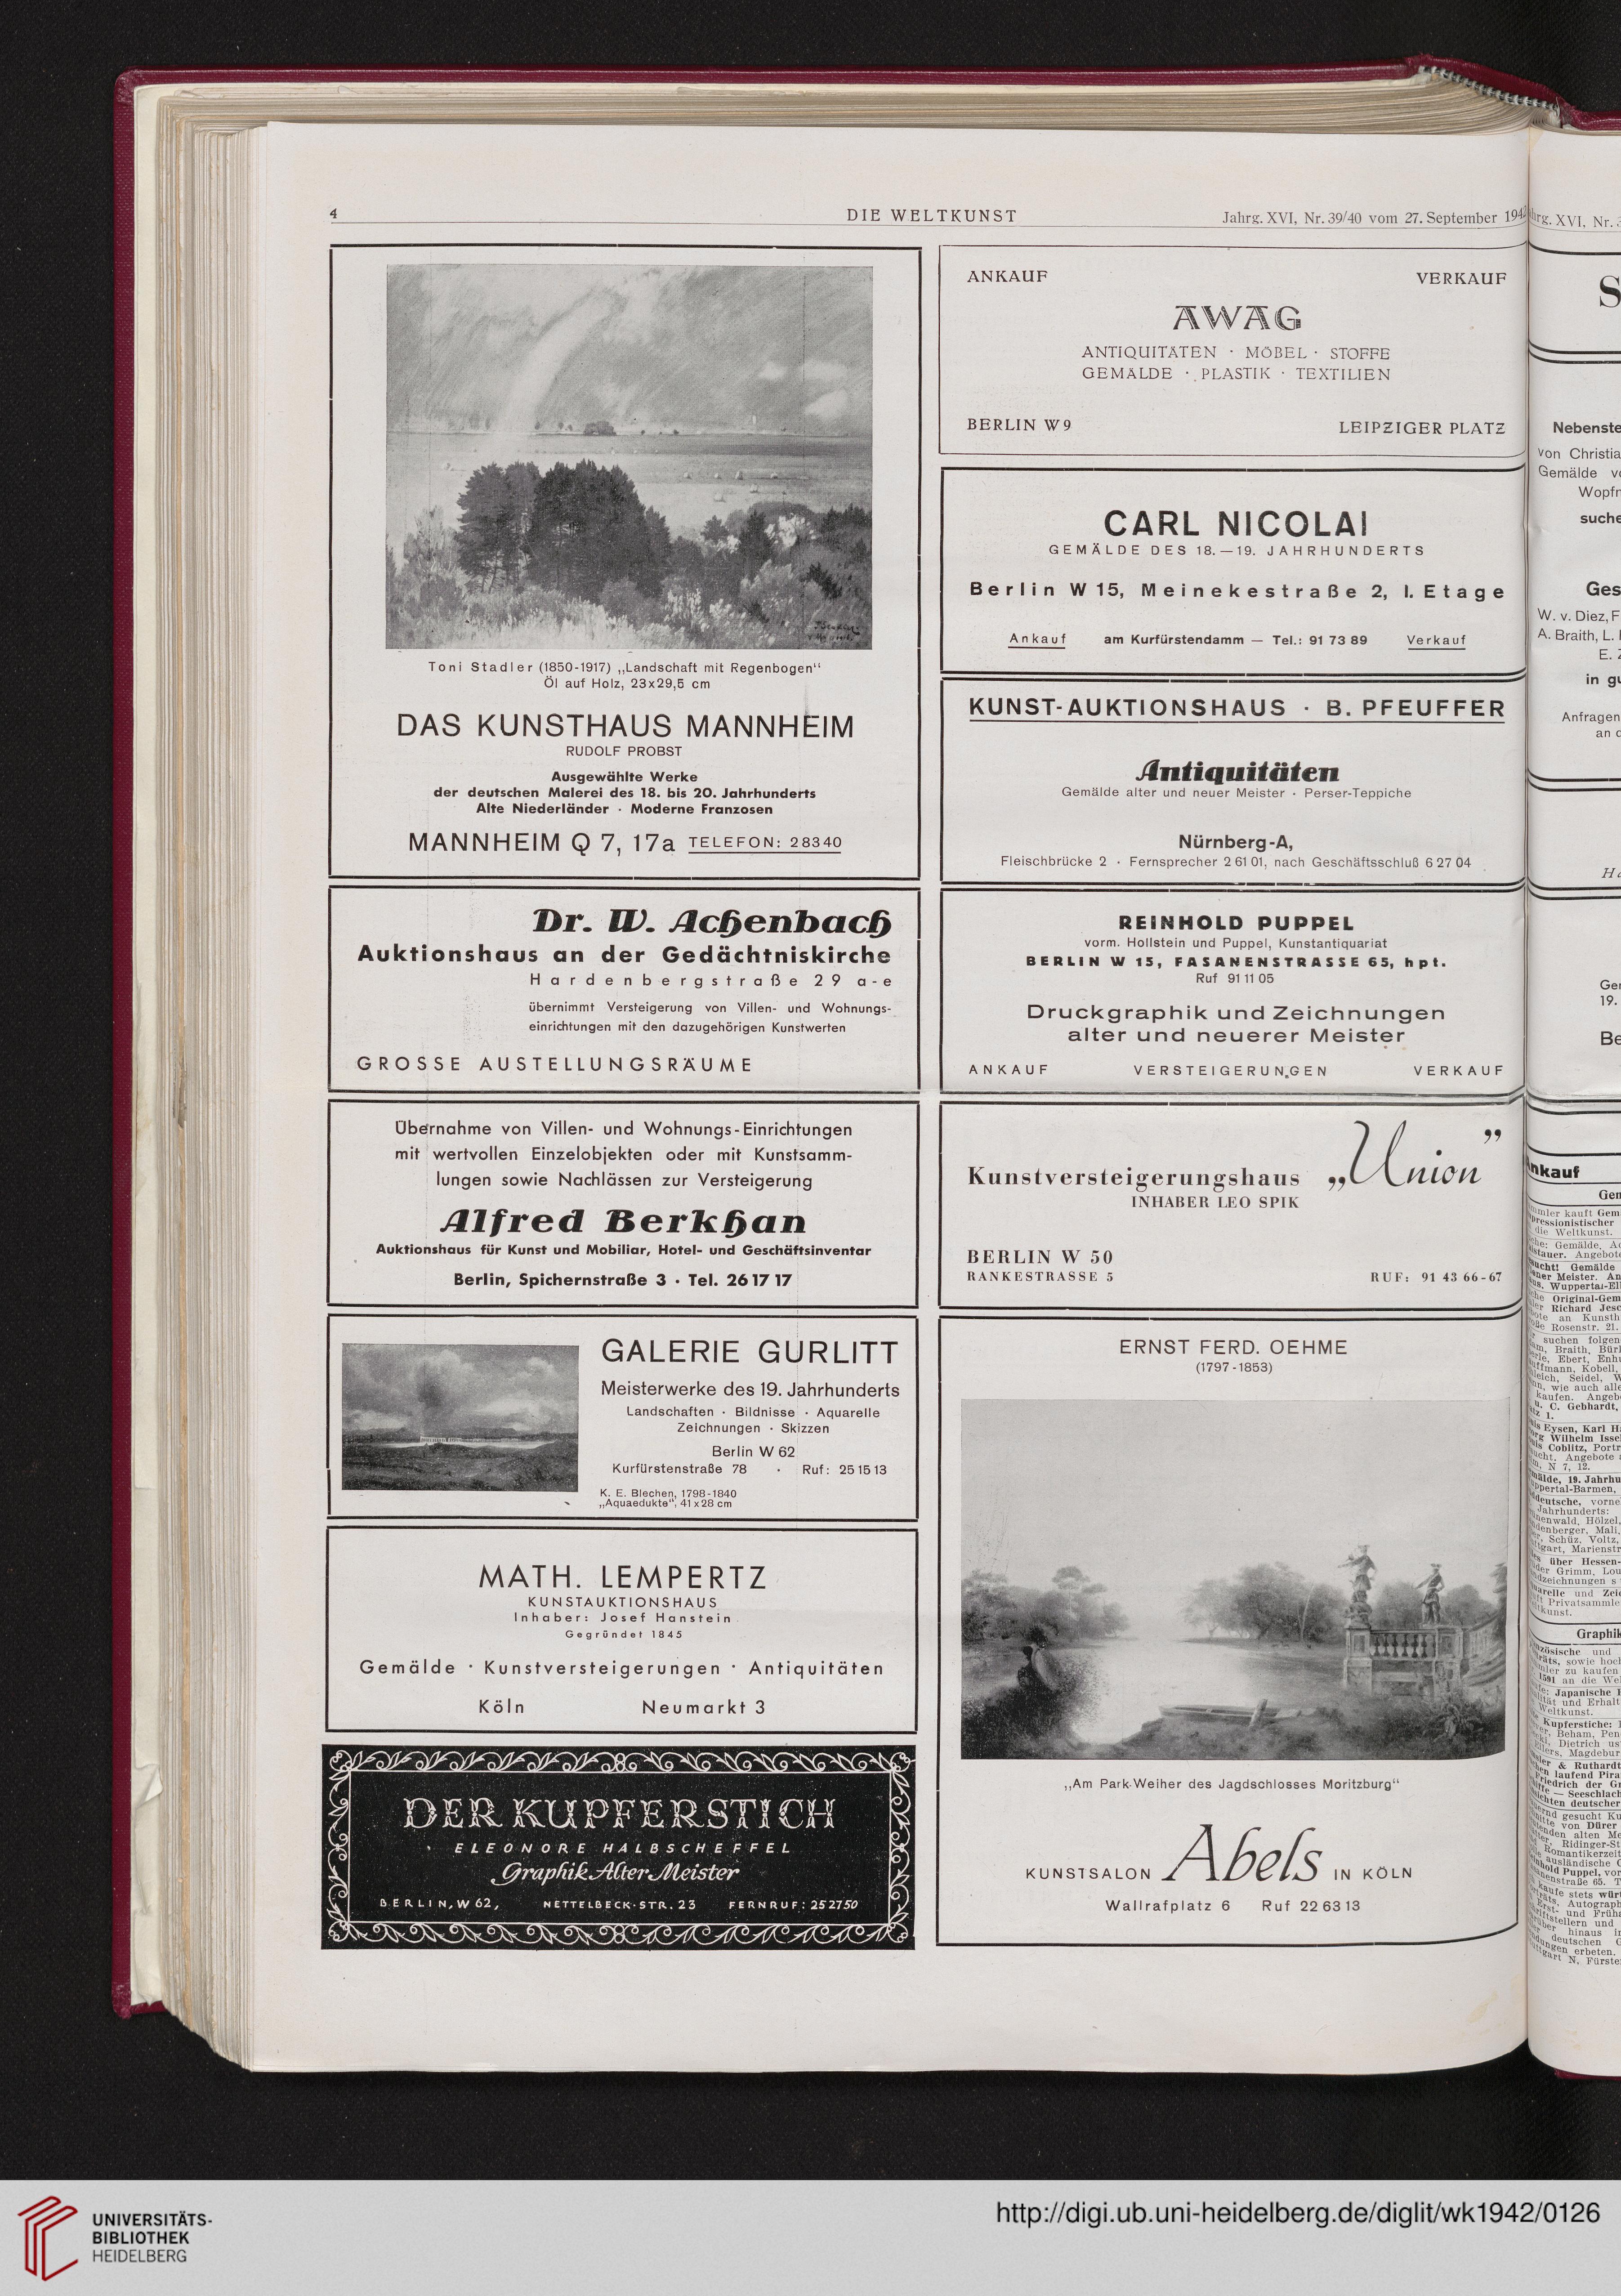 4
DIE WELTKUNST
Jahrg. XVI, Nr. 39/40 vom 27. September 1942
Toni Stadler (1850-1917) „Landschaft mit Regenbogen“
Öl auf Holz, 23x29,5 cm
DAS KUNSTHAUS MANNHEIM
RUDOLF PROBST
Ausgewählte Werke
der deutschen Malerei des 18. bis 20. Jahrhunderts
Alte Niederländer · Moderne Franzosen
MANNHEIM Q 7, 17a TELEFON: 28340
Dr. W. Achenbach
Auktionshaus an der Gedächtniskirche
Hardenbergstraße 29 a-e
übernimmt Versteigerung von Villen- und Wohnungs-
einrichtungen mit den dazugehörigen Kunstwerten
GROSSE AUSTELLUNGSRÄUME
Übernahme von Villen- und Wohnungs-Einrichtungen
mit wertvollen Einzelobjekten oder mit Kunstsamm-
lungen sowie Nachlässen zur Versteigerung
Alfred Berkhan
Auktionshaus für Kunst und Mobiliar, Hotel- und Geschäftsinventar
Berlin, Spichernstraße 3 · Tel. 26 17 17
GALERIE GURLITT
Meisterwerke des 19. Jahrhunderts
Landschaften · Bildnisse · Aquarelle
Zeichnungen · Skizzen
Berlin W 62
Kurfürstenstraße 78 · Ruf: 25 15 13
K. E. Blechen, 1798-1840
„Aquaedukte“, 41x28 cm
MATH. LEMPERTZ
KUNSTAUKTIONSHAUS
Inhaber: Josef Hanstein
Gegründet 1845
Gemälde · Kunstversteigerungen · Antiquitäten
Köln Neumarkt 3
DER KUPFERSTICH
ELEONORE HALBSCHEFFEL
Graphik Alter Meister
BERLIN, W 62, NETTELBECK-STR. 23 FERNRUF: 252750
ANKAUF VERKAUF
AWAG
ANTIQUITÄTEN · MÖBEL · STOFFE
GEMÄLDE · PLASTIK · TEXTILIEN
BERLIN W 9 LEIPZIGER PLATZ
CARL NICOLAI
GEMÄLDE DES 18.—19. JAHRHUNDERTS
Berlin W 15, Meinekestraße 2, I. Etage
Ankauf am Kurfürstendamm — Tel.: 91 73 89 Verkauf
KUNST-AUKTIONSHAUS · B. PFEUFFER
Antiquitäten
Gemälde alter und neuer Meister · Perser-Teppiche
Nürnberg-A,
Fleischbrücke 2 · Fernsprecher 2 61 01, nach Geschäftsschluß 6 27 04
REINHOLD PUPPEL
vorm. Hollstein und Puppel, Kunstantiquariat
BERLIN W 15, FASANENSTRASSE 65, hpt.
Ruf 91 11 05
Druckgraphik und Zeichnungen
alter und neuerer Meister
ANKAUF VERSTEIGERUNGEN VERKAUF
Kunstversteigerungshaus „Union”
INHABER LEO SPIK
BERLIN W 50
RANKESTRASSE 5 RUF: 91 43 66-67
ERNST FERD. OEHME
(1797-1853)
„Am Park-Weiher des Jagdschlosses Moritzburg“
KUNSTSALON Abels IN KÖLN
Wallrafplatz 6 Ruf 22 63 13
UNIVERSITÄTS-
BIBLIOTHEK
HEIDELBERG
http://digi.ub.uni-heidelberg.de/diglit/wk1942/0126